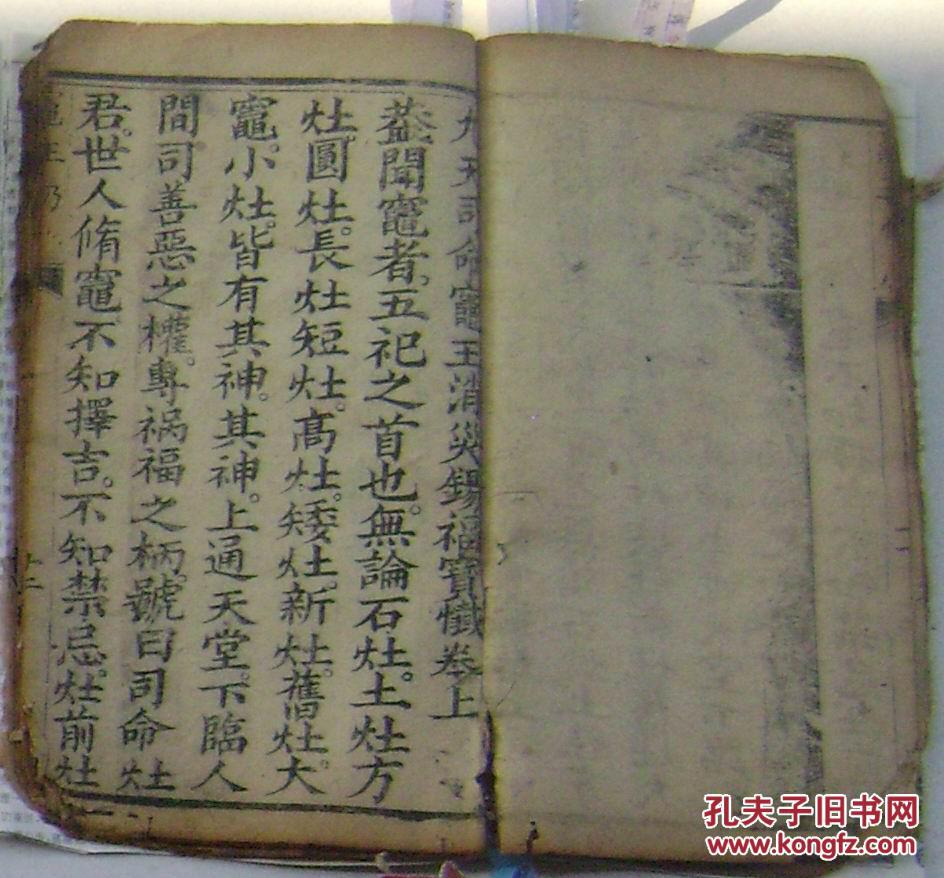 九天司命竈王消災錫福寶懺卷上
蓋聞竈者。五祀之首也。無論石灶。土灶方
灶。圓灶。長灶短灶。高灶。矮灶。新灶。舊灶。大
竈。小灶。皆有其神。其神。上通天堂。下臨人
間司善惡之權。專禍福之柄。號曰司命灶
君。世人脩竈不知擇吉。不知禁忌。灶前灶
孔夫子旧书网
www.kongfz.com